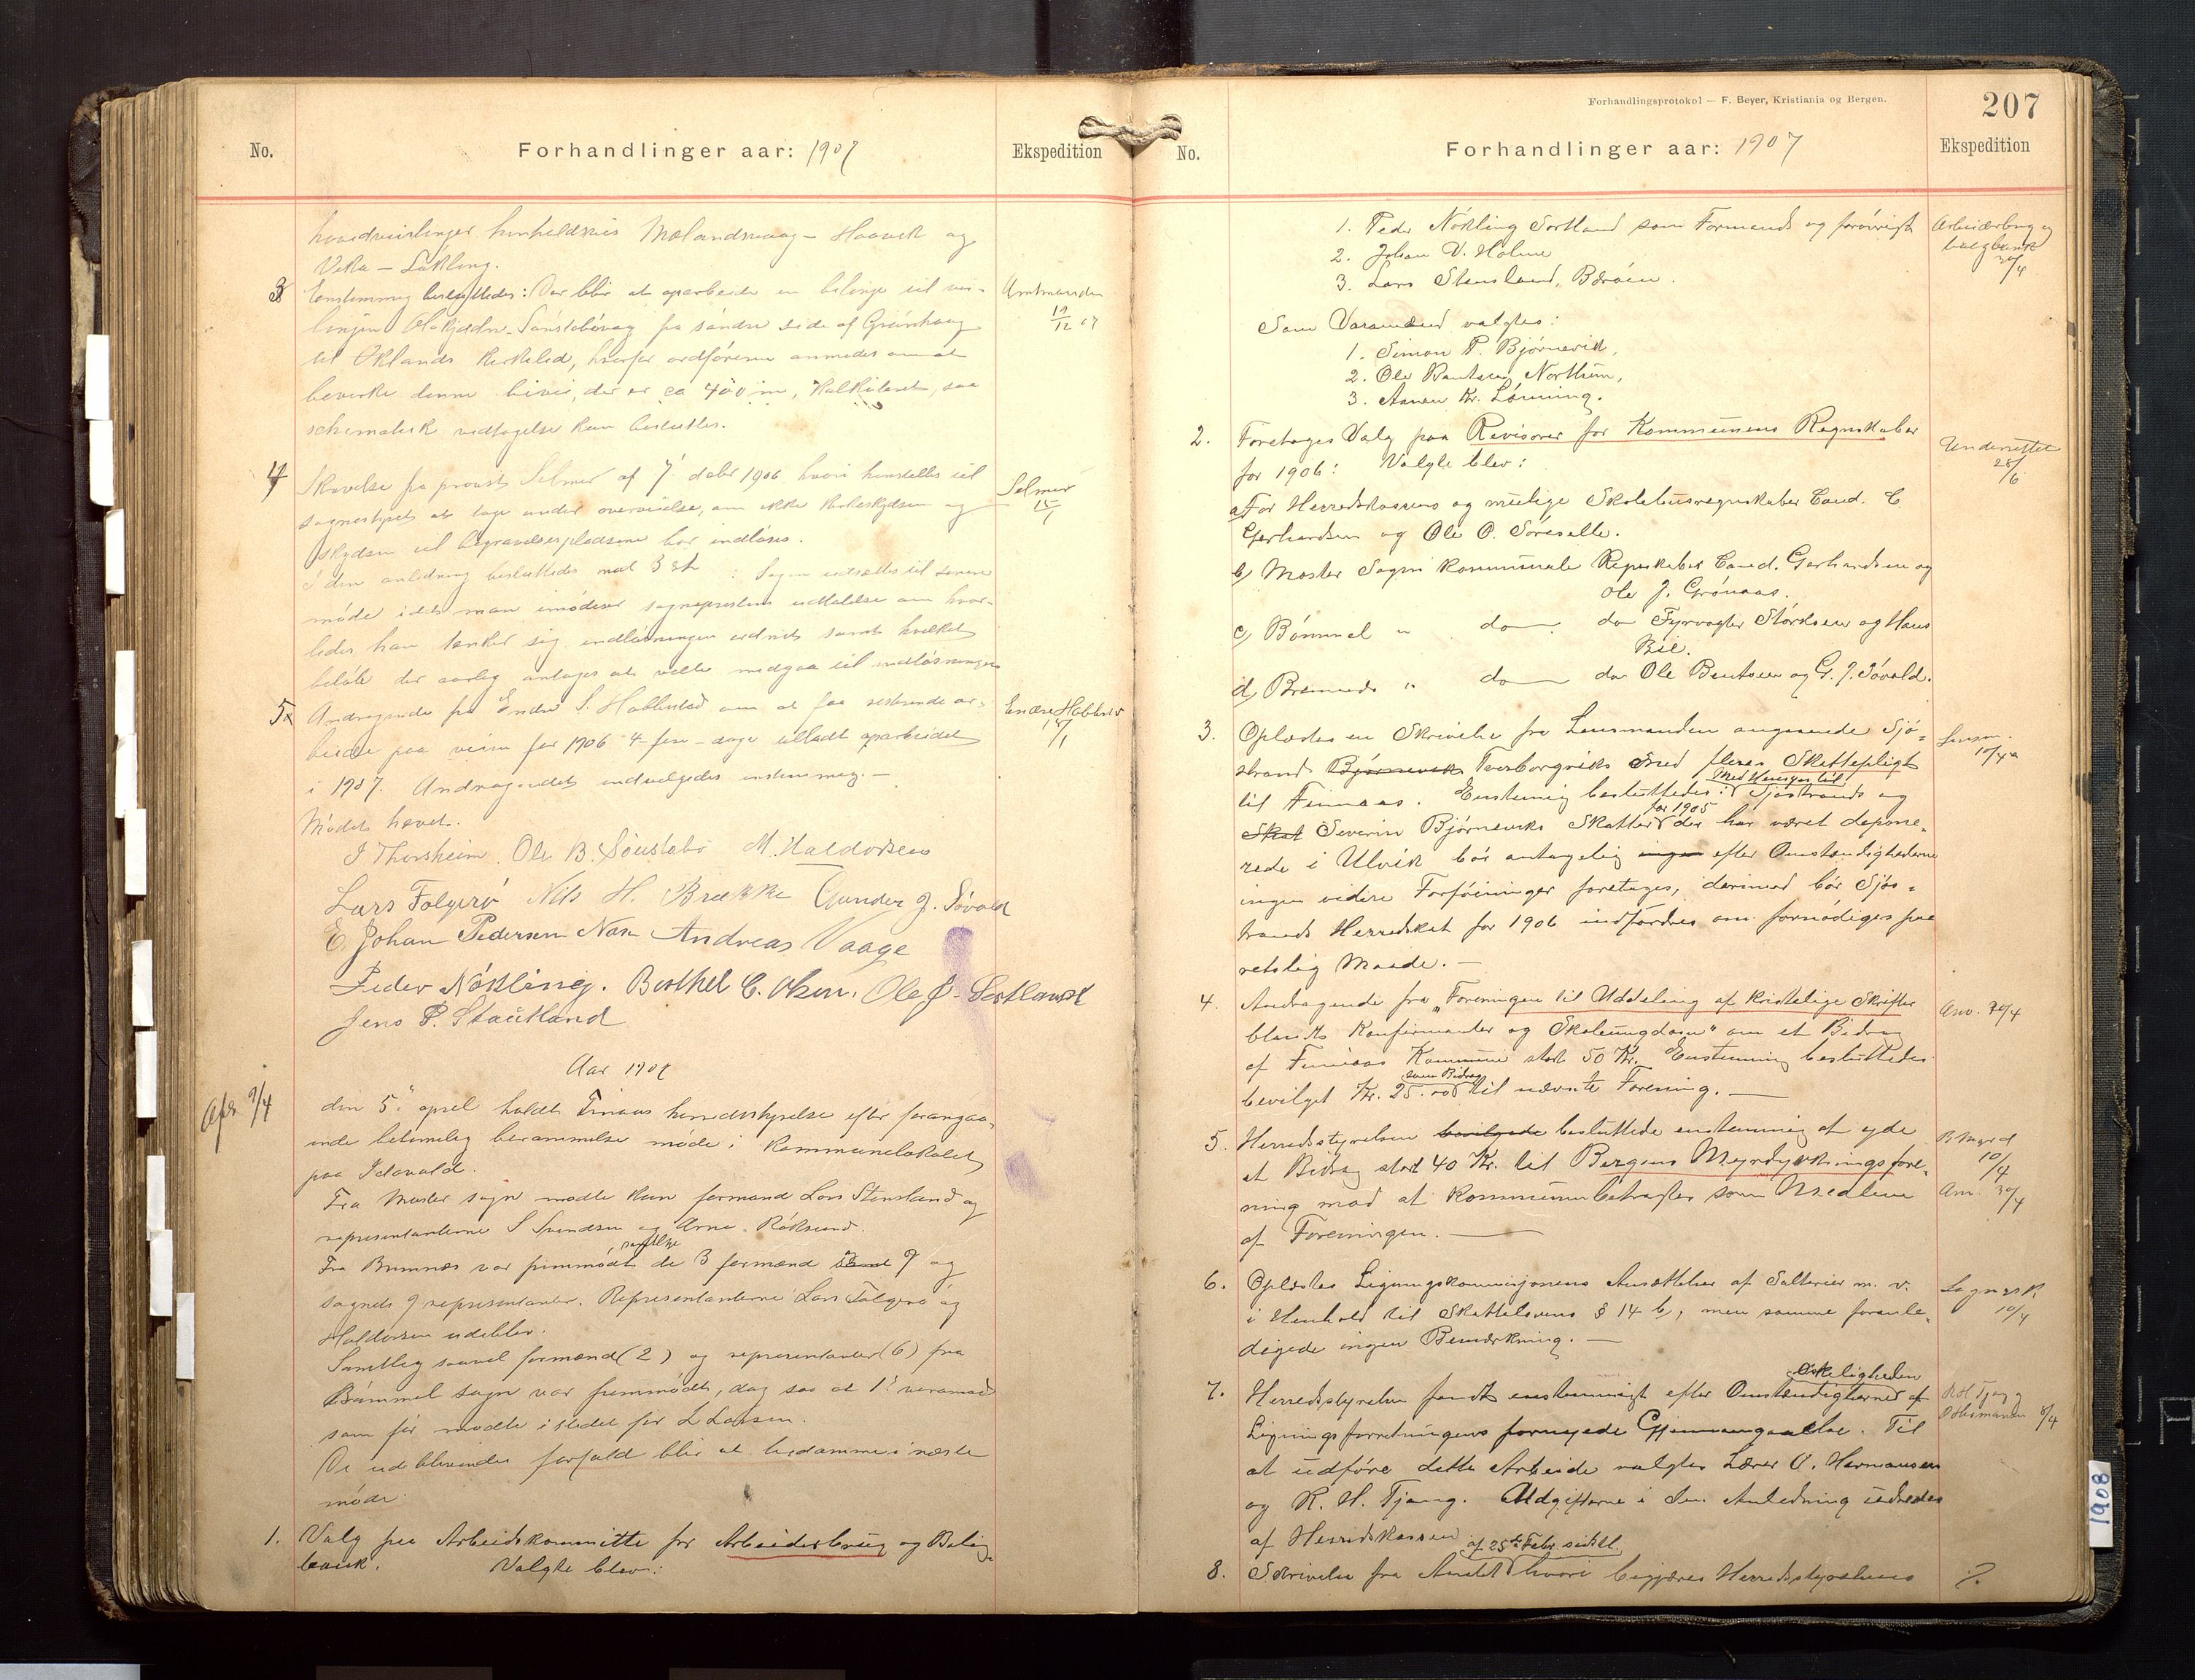 No.
Forhandlinger aar: 1907
Ekspedition
hovedveislinger henholdsvis Mølandsvaag – Haavik og
Veka – Løkling.
3 Enstemmig besluttedes: Der blir at oparbeide en bivei til vei-
linjen Olakjædn – Sønstabøvaag fra søndre side af Grønhaug
til Øklands Kirkeled, hvorfor ordføreren anmodes om at
bevirke denne bivei, der er ca 400 m, kalkuleret, saa
schematisk vedtagelse kan besluttes.
Amtmanden
19/12 07
4 Skrivelse fra provst Selmer af 7 debr 1906 hvori henstilles til
sognestyret at tage under overveielse, om ikke kirkeskydsen og
skydsen til begravelsespladsene bør indløses.
I den anledning besluttedes mod 3 st : Sagen udsættes til senere
møde idet man imødeser sogneprestens udtalelse om hvor-
ledes han tænker sig indløsningen ordnet samt hvilket
beløb der aarlig antages at ville medgaa til indløsningen
Selmer
15/1
5 Andragende fra Endre S. Hallestad om at faa restrende ar-
beide paa veien for 1906 4 – fire – dage tilladt oparbeidet
i 1907. Andragendet indvilgedes enstemmig. –
Mødet hævet.
Endre Hallest
15/1
J Thorsheim. Ole B. Sønstabø M. Haldorsen
Lars Folgerø Nils H. Brække Gunder J. Søvold
E. Johan Pedersen Næse Andreas Vaage
Peder Nøkling. Berthel C. Olsen. Ole J. Sortland
Jens P. Stautland
Aar 1907
Afs. 9/4
den 5. april holdt Finaas herredsstyrelse efter forangaa-
ende betimelig berammelse møde i Kommunelokalet
paa Idavold.
Fra Moster sogn mødte kun formand Lars Stensland og
representanterne S Svendsen og Arne Røksund.
Fra Bremnes var fremmødt samtlige de 3 formænd samt 9 og
sognets 9 representanter. Representanterne Lars Folgerø og
Haldorsen udeblev.
Samtlig saavel formænd (2) og representanter (6) fra
Bømmel sogn var fremmødt, dog saa at 1ste varamand
som før mødte istedet for L Larsen.
De udeblivendes forfald blir at bedømme i næste
møde.
1. Valg paa Arbeidskommitte for Arbeiderbrug og Bolig-
bank. Valgte blev:
Forhandlingsprotokol — F. Beyer, Kristiania og Bergen.
207
No.
Forhandlinger aar: 1907
Ekspedition
1. Peder Nökling Sortland som Formand og forövrigt
2. Johan V. Holme
3. Lars Stensland, Bæröen.
Arbeiderbrug og
boligbank
30/4
Som Varamænd valgtes:
1. Simon P. Bjørnevik,
2. Ole Bentsen, Nortun,
3. Aanen Kr. Lønning.
2. Foretoges Valg paa Revisorer for Kommunens Regnskaber
for 1906: Valgte blev:
Underrettet
28/6
a For Herredskassens og mulige Skolehusregnskaber Cand. C
Gerhardsen og Ole O. Søreselle.
b) Moster Sogns kommunale Regnskaber Cand. Gerhardsen og
Ole J. Grönaas.
c) Bömmel " do do Fyrvogter Störksen og Hans
Bøe.
d) Bremnes " do do Ole Bentsen og G. J. Sövold.
3. Oplæstes en Skrivelse fra Lensmanden angaaende Sjö-
strands Bjørneviks Tverborgviks med fleres Skattepligt
til Finnaas. Enstemig besluttedes: Med Hensyn til Sjöstrands og
Skat Severin Bjørneviks Skatter for 1905 der har været depone-
rede i Ulvik bör antagelig ingen efter Omstændighederne
ingen videre Forföininger foretages, derimod bör Sjös-
trands Herredskat for 1906 indfordres om fornödiges paa
retslig Maade. –
Lensm.
10/4
4. Andragende fra „Foreningen til Uddeling af kristelige Skrifter
blandt Konfirmanter og Skoleungdom" om et Bidrag
af Finnaas Kommune stort 50 Kr. Enstemmig besluttedes
bevilget Kr. 25.00 som Bidrag til nævnte Forening. –
Anv. 30/4
5. Herredsstyrelsen bevilgede besluttede enstemmig at yde
et Bidrag stort 40 Kr. til Bergens Myrdyrkningsfore-
ning mod at Kommunen betragtes som Medlem
af Foreningen. –
B Myrd
10/4
Anv. 30/4
6. Oplæstes Ligningskommisjonens Ansættelser af Salterier m. v.
i Henhold til Skattelovens § 14 b, men samme foranle-
digede ingen Bemærkning. –
Lignsk
10/4
7. Herredsstyrelsen fandt enstemmigt efter Omstændighederne af
Ligningsforretningens fornyede Gjennemgaaelse. Til
at udföre dette Arbeide valgtes Lærer O. Hermansen
og R. H. Tjong. Udgifterne i den Anledning udredes
af Herredskassen.
R H Tjong og
O Hermansen 8/4
8. Skrivelse fra Amtet af 25de Febr. sidstl. hvori begjæres Herredsstyrelsens
1908